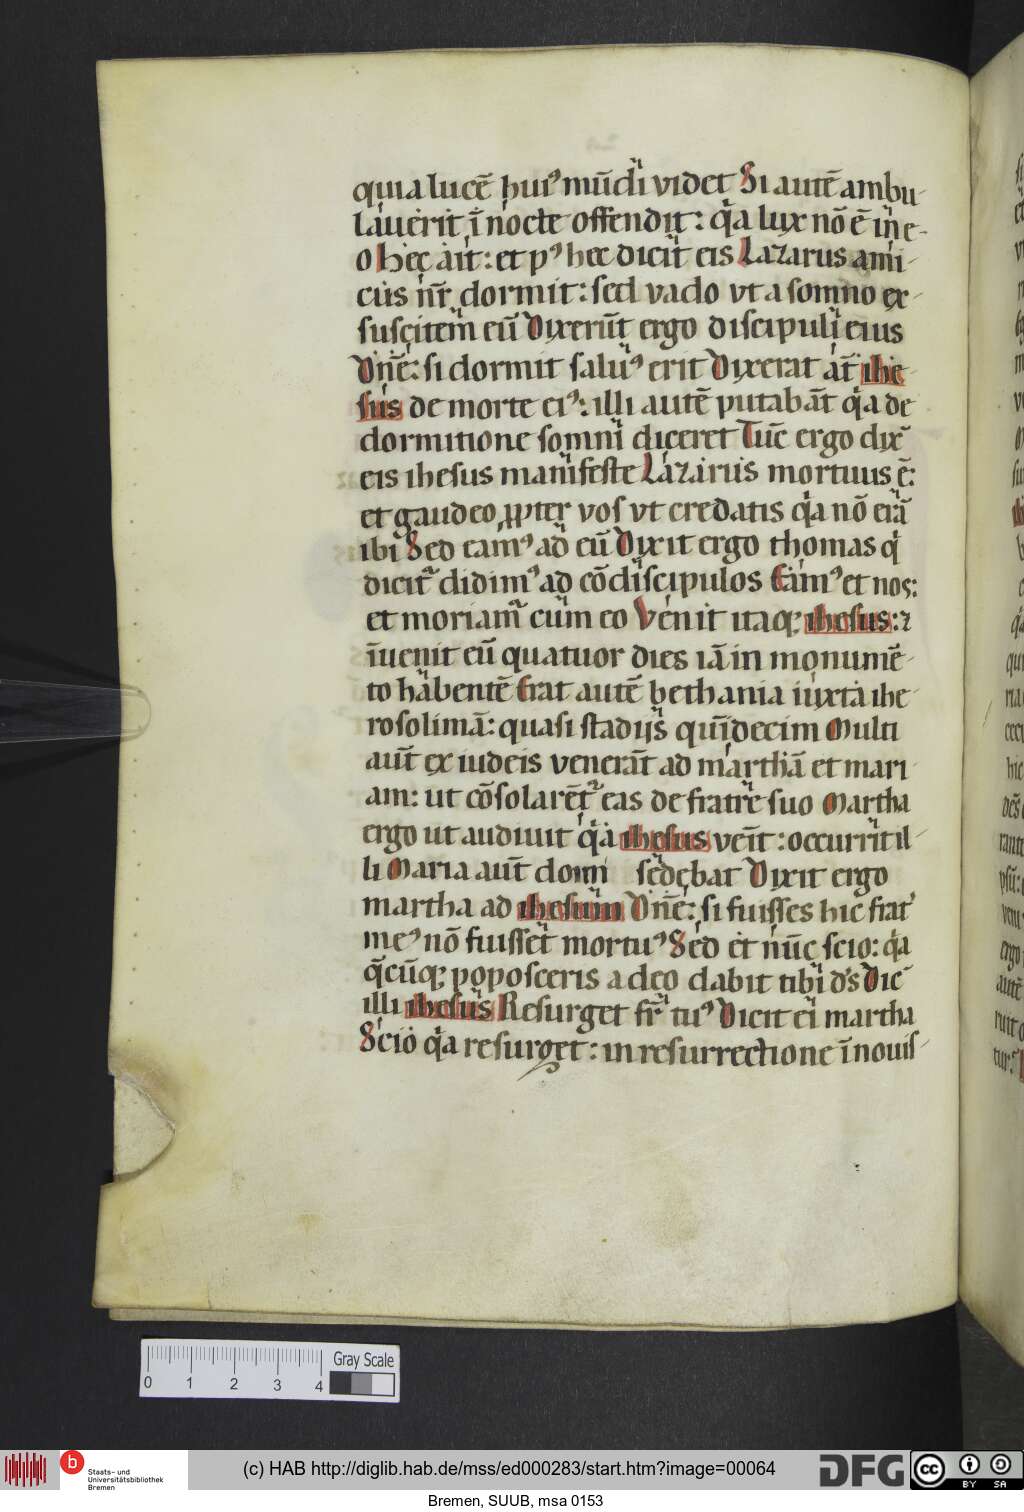 quia lucē huiꝰ mūdi videt Si autē ambu-
lauerit ī nocte offendit : qͥa lux nō ē in e-
o Hec ait : et pꝰ hec dicit eis Lazarus ami-
cus nr̄ dormit : sed vado vt a somno ex-
suscitem eū Dixerūt ergo discipuli eius
Dn̄e : si dormit saluꝰ erit Dixerat āt ihe-
sus de morte eiꝰ : illi autē putabāt qͥa de
dormitione somni diceret Tūc ergo dix̄
eis ihesus manifeste Lazarus mortuus ē :
et gaudeo ꝓpter vos vt credatis qͥa nō erā
ibi Sed eamꝰ ad eū Dixit ergo thomas qͥ
dicitᷣ didimꝰ ad cōdiscipulos Eamꝰ et nos :
et moriamᷣ cum eo Venit itaqꝫ ihesus : ⁊
īuenit eū quatuor dies iā in monumē-
to habentē Erat autē bethania iuxta ihe
rosolimā : quasi stadijs quīdecim Multi
aūt ex iudeis venerāt ad marthā et mari
am : ut cōsolarētᷣ eas de fratre suo Martha
ergo ut audiuit qͥa ihesus veīt : occurrit il-
li Maria aūt domi sedebat Dixit ergo
martha ad ihesum Dn̄e : si fuisses hic frat̕
meꝰ nō fuisset mortuꝰ Sed et nūc scio : qͥa
q̄cūqꝫ poposceris a deo dabit tibi ds̄ Dic̄
illi ihesus Resurget fr̄ tuꝰ Dicit ei martha
Scio qͥa resurget : in resurrectione ī nouis-
0 1 2 3 4
Gray Scale
b
Staats- und
Universitätsbibliothek
Bremen
(c) HAB http://diglib.hab.de/mss/ed000283/start.htm?image=00064
DFG
cc BY SA
Bremen, SUUB, msa 0153